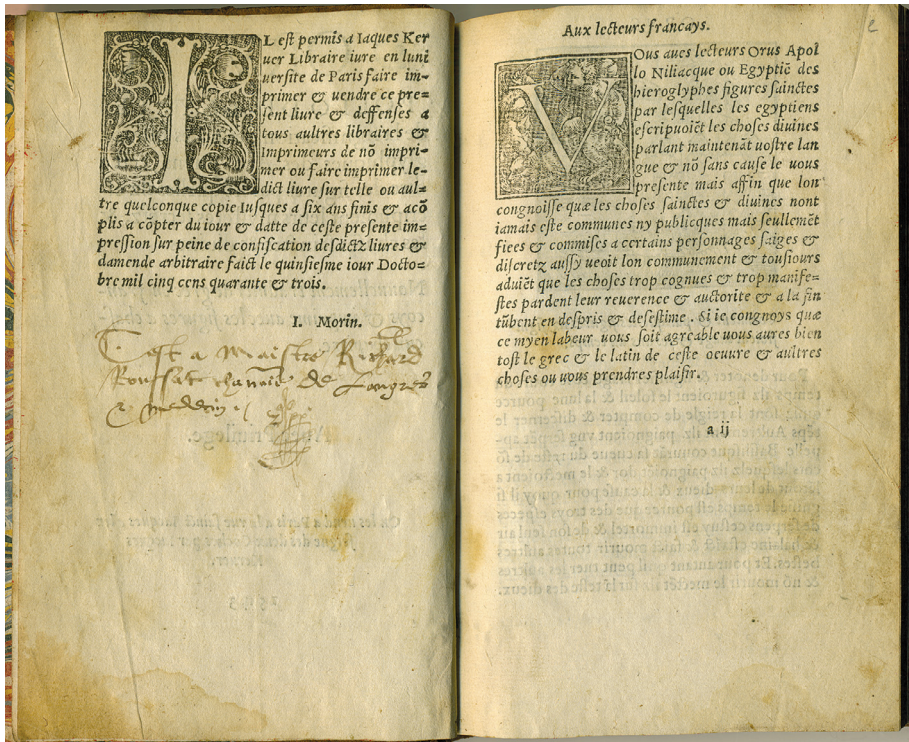 IL est permis a Iaques Ker
uer Libraire iure en luni
uersite de Paris faire im=
primer & uendre ce pre=
sent liure & deffenses a
tous aultres libraires &
imprimeurs de nõ impri=
mer ou faire imprimer le=
dict liure sur telle ou aul=
tre quelconque copie Iusques a six ans finis & acõ
plis a cõpter du iour & datte de ceste presente im=
pression sur peine de confiscation desdictz liures &
damende arbitraire faict le quinsiesme iour Docto=
bre mil cinq cens quarante & trois.
I. Morin.
C'est a Maistre Richard
Roussat chanoine de Langres
& medecin
Aux lecteurs francays.
2
VOus aues lecteurs Orus Apol
lo Niliacque ou Egyptiẽ des
hieroglyphes figures sainctes
par lesquelles les egyptiens
escripuoiẽt les choses diuines
parlant maintenãt uostre lan
gue & nõ sans cause le uous
presente mais affin que lon
congnoisse quæ les choses sainctes & diuines nont
iamais este communes ny publicques mais seullemẽt
fiees & commises a certains personnages saiges &
discretz aussy ueoit lon communement & tousiours
aduiẽt que les choses trop cognues & trop manife=
stes pardent leur reuerence & auctorite & a la fin
tũbent en despris & desestime. Si ie congnoys quæ
ce myen labeur uous soit agreable uous aures bien
tost le grec & le latin de ceste oeuure & aultres
choses ou uous prendres plaisir.
a ij